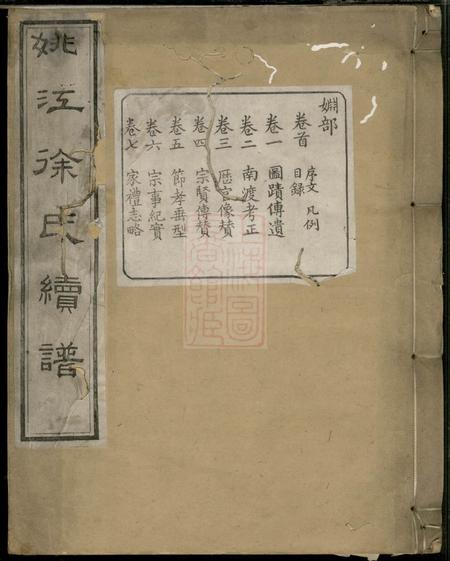 姚江徐氏續譜
婣部
卷首 序文 凡例 目録
卷一 圖蹟傳遺
卷二 南渡考正
卷三 歷宦像賛
卷四 宗賢傳賛
卷五 節孝垂型
卷六 宗事紀實
卷七 家禮志略